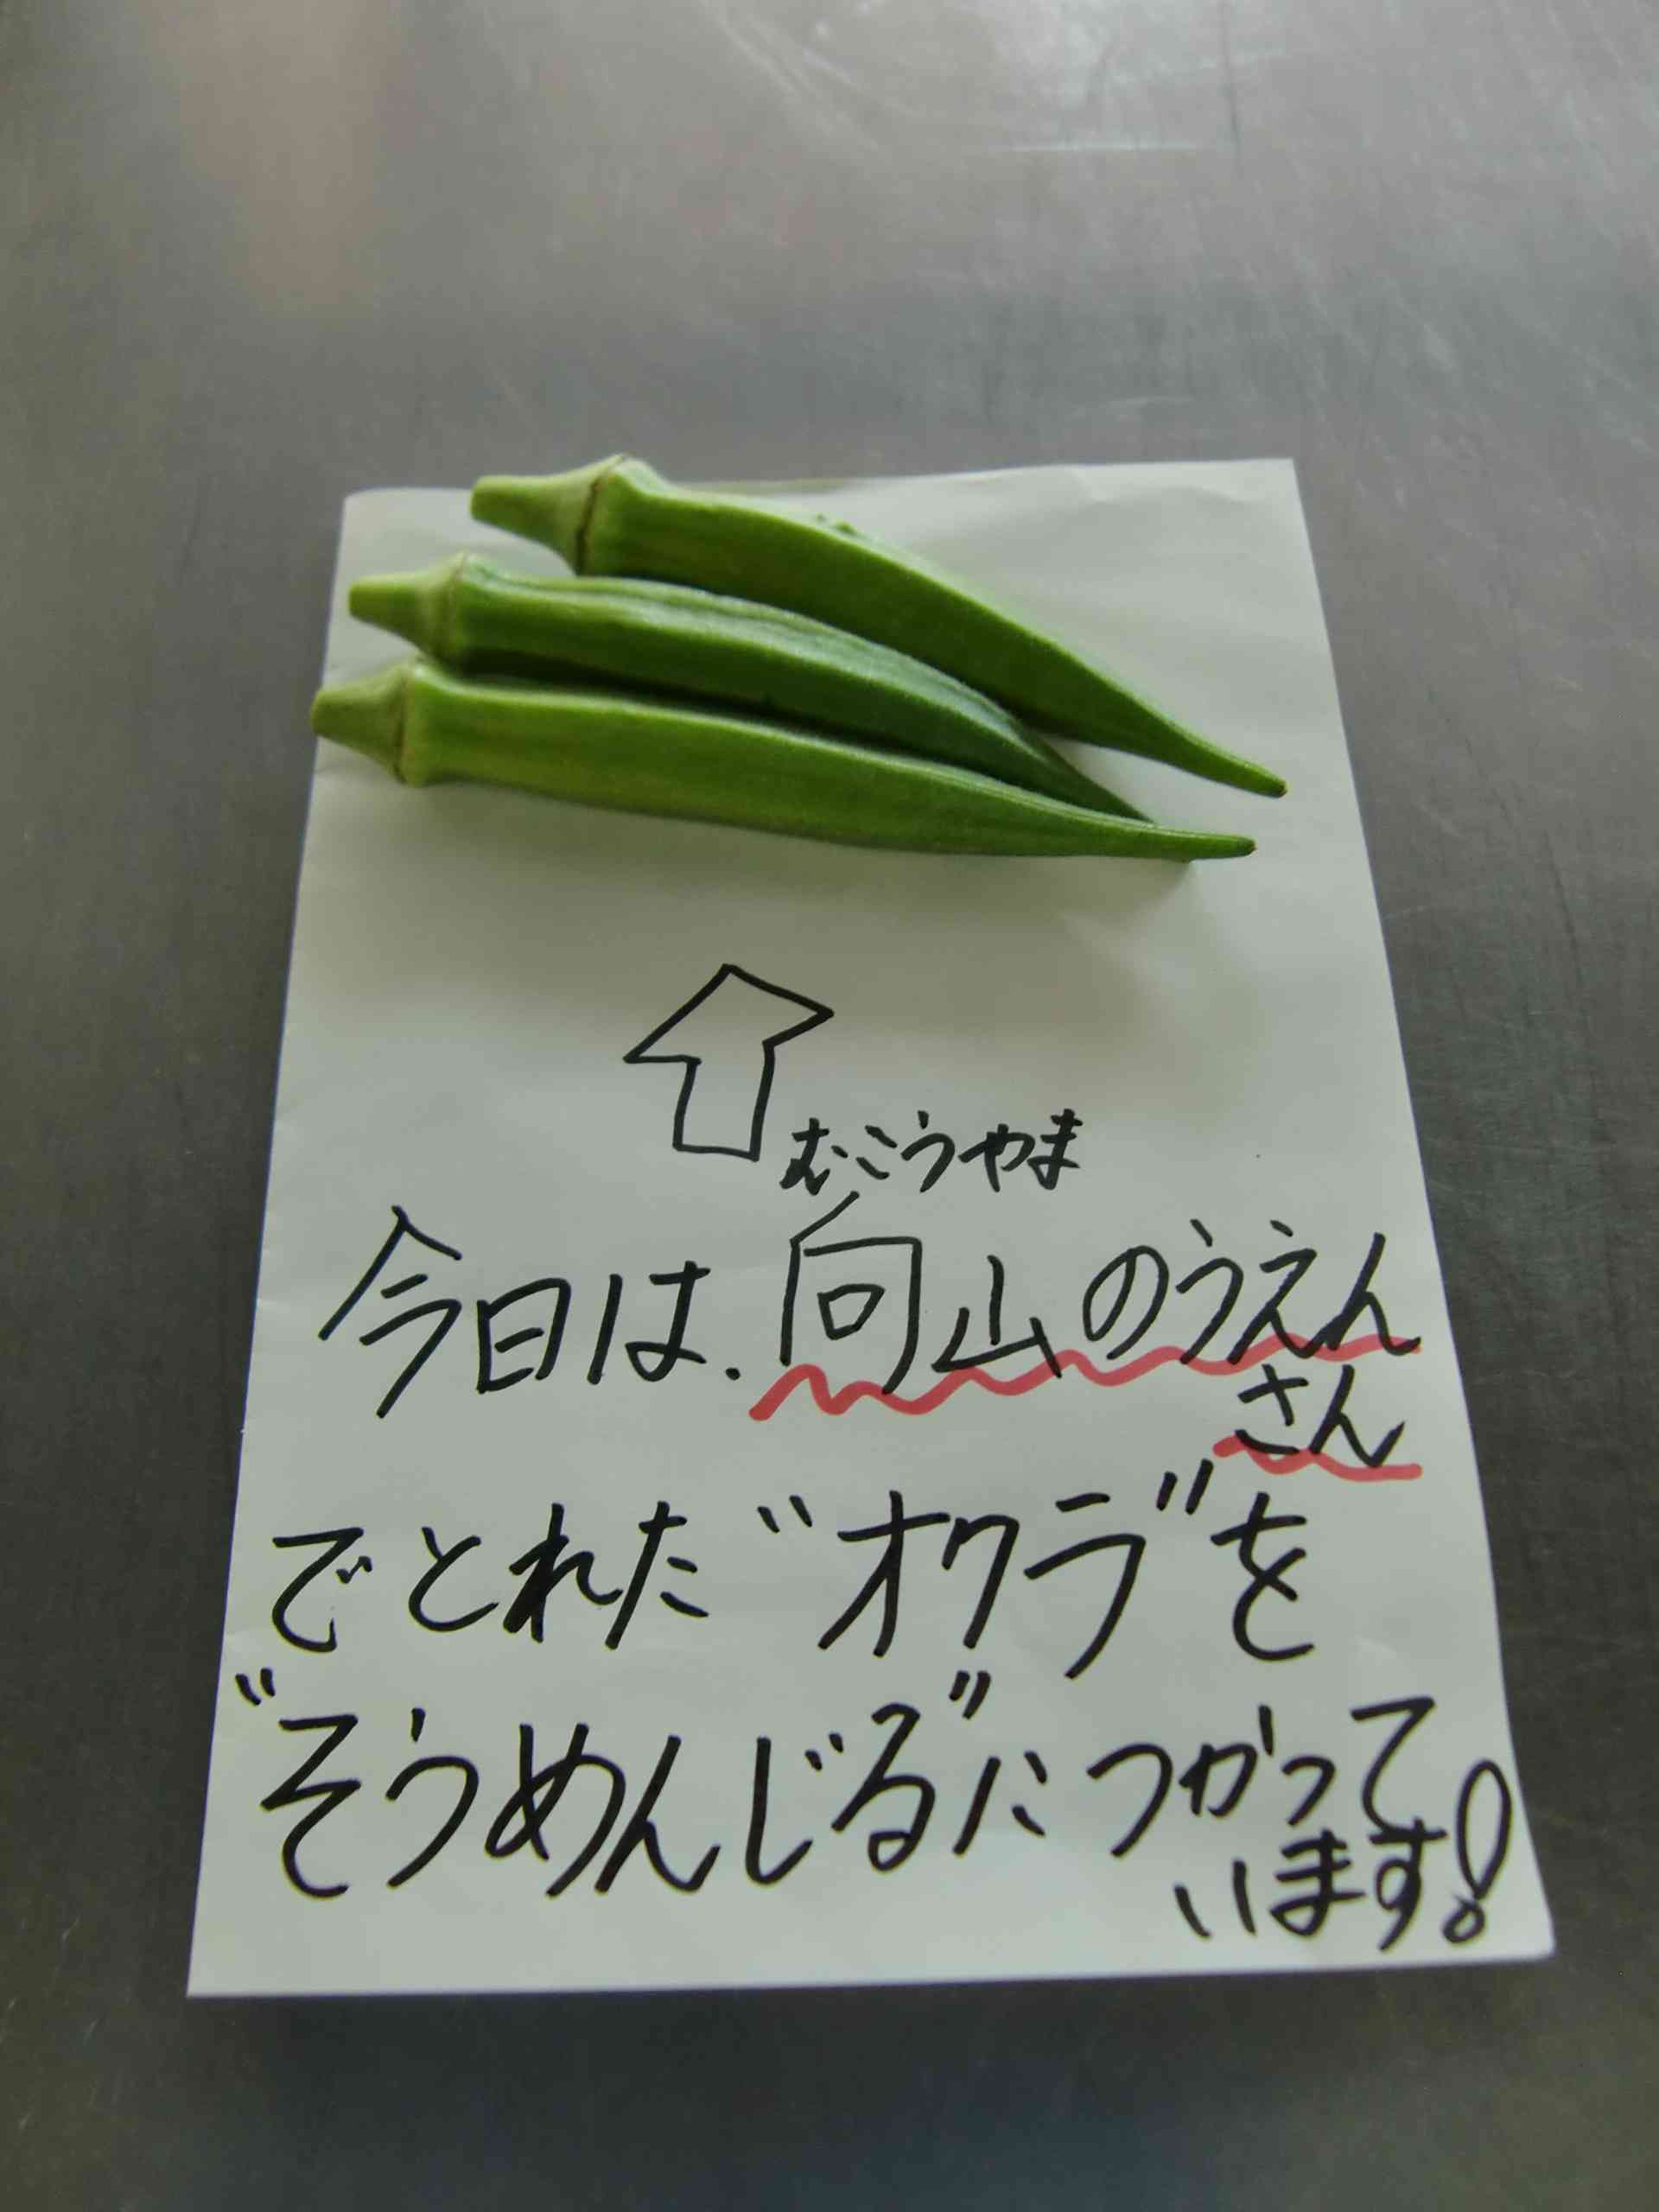 むこうやま
今日は.向山のうえん
さん
でとれた"オクラ"を
"そうめんじる"につかって
います!